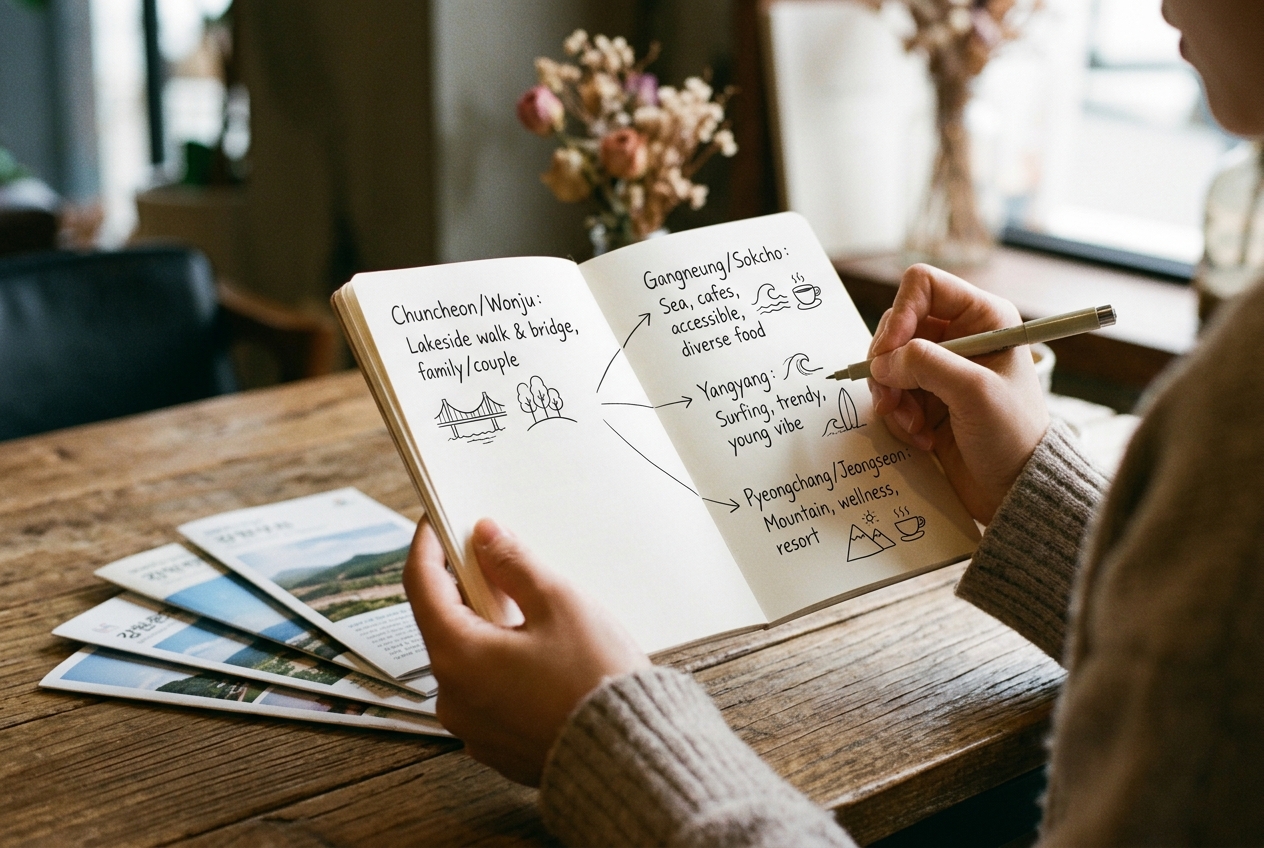 Chuncheon/Wonju:
Lakeside walk & bridge,
family/couple
Gangneung/Sokcho:
Sea, cafes,
accessible,
diverse food
Yangyang:
Surfing, trendy,
young vibe
Pyeongchang/Jeongseon:
Mountain, wellness,
resort